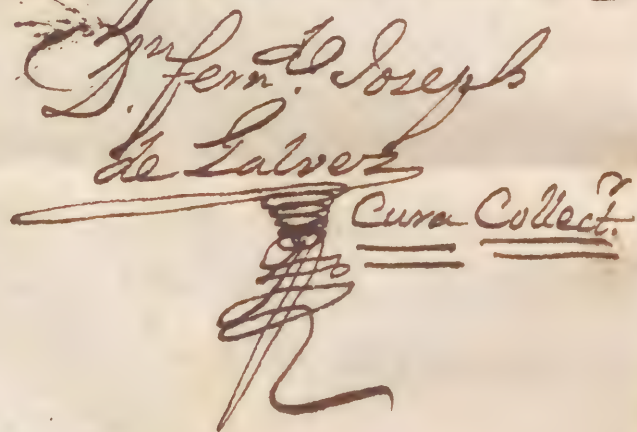 D.ⁿ Fern.ᵈᵒ Joseph
de Galvez
Cura Collect.ʳ